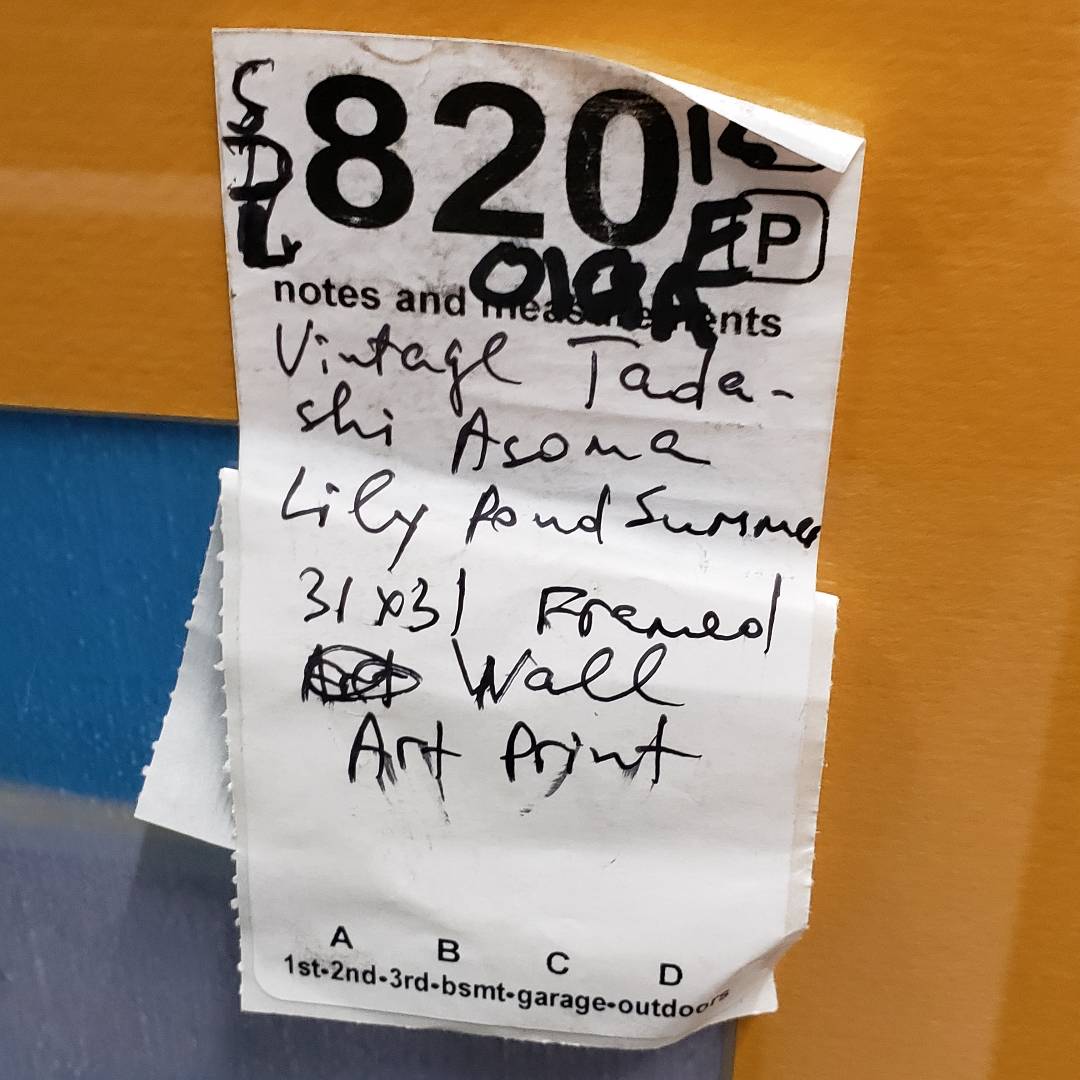 S
D
L
820
P
notes and measurements
Vintage Tada-
shi Asoma
Lily Pond Summer
31x31 Framed
Wall
Art Print
A B C D
1st-2nd-3rd-bsmt-garage-outdoors